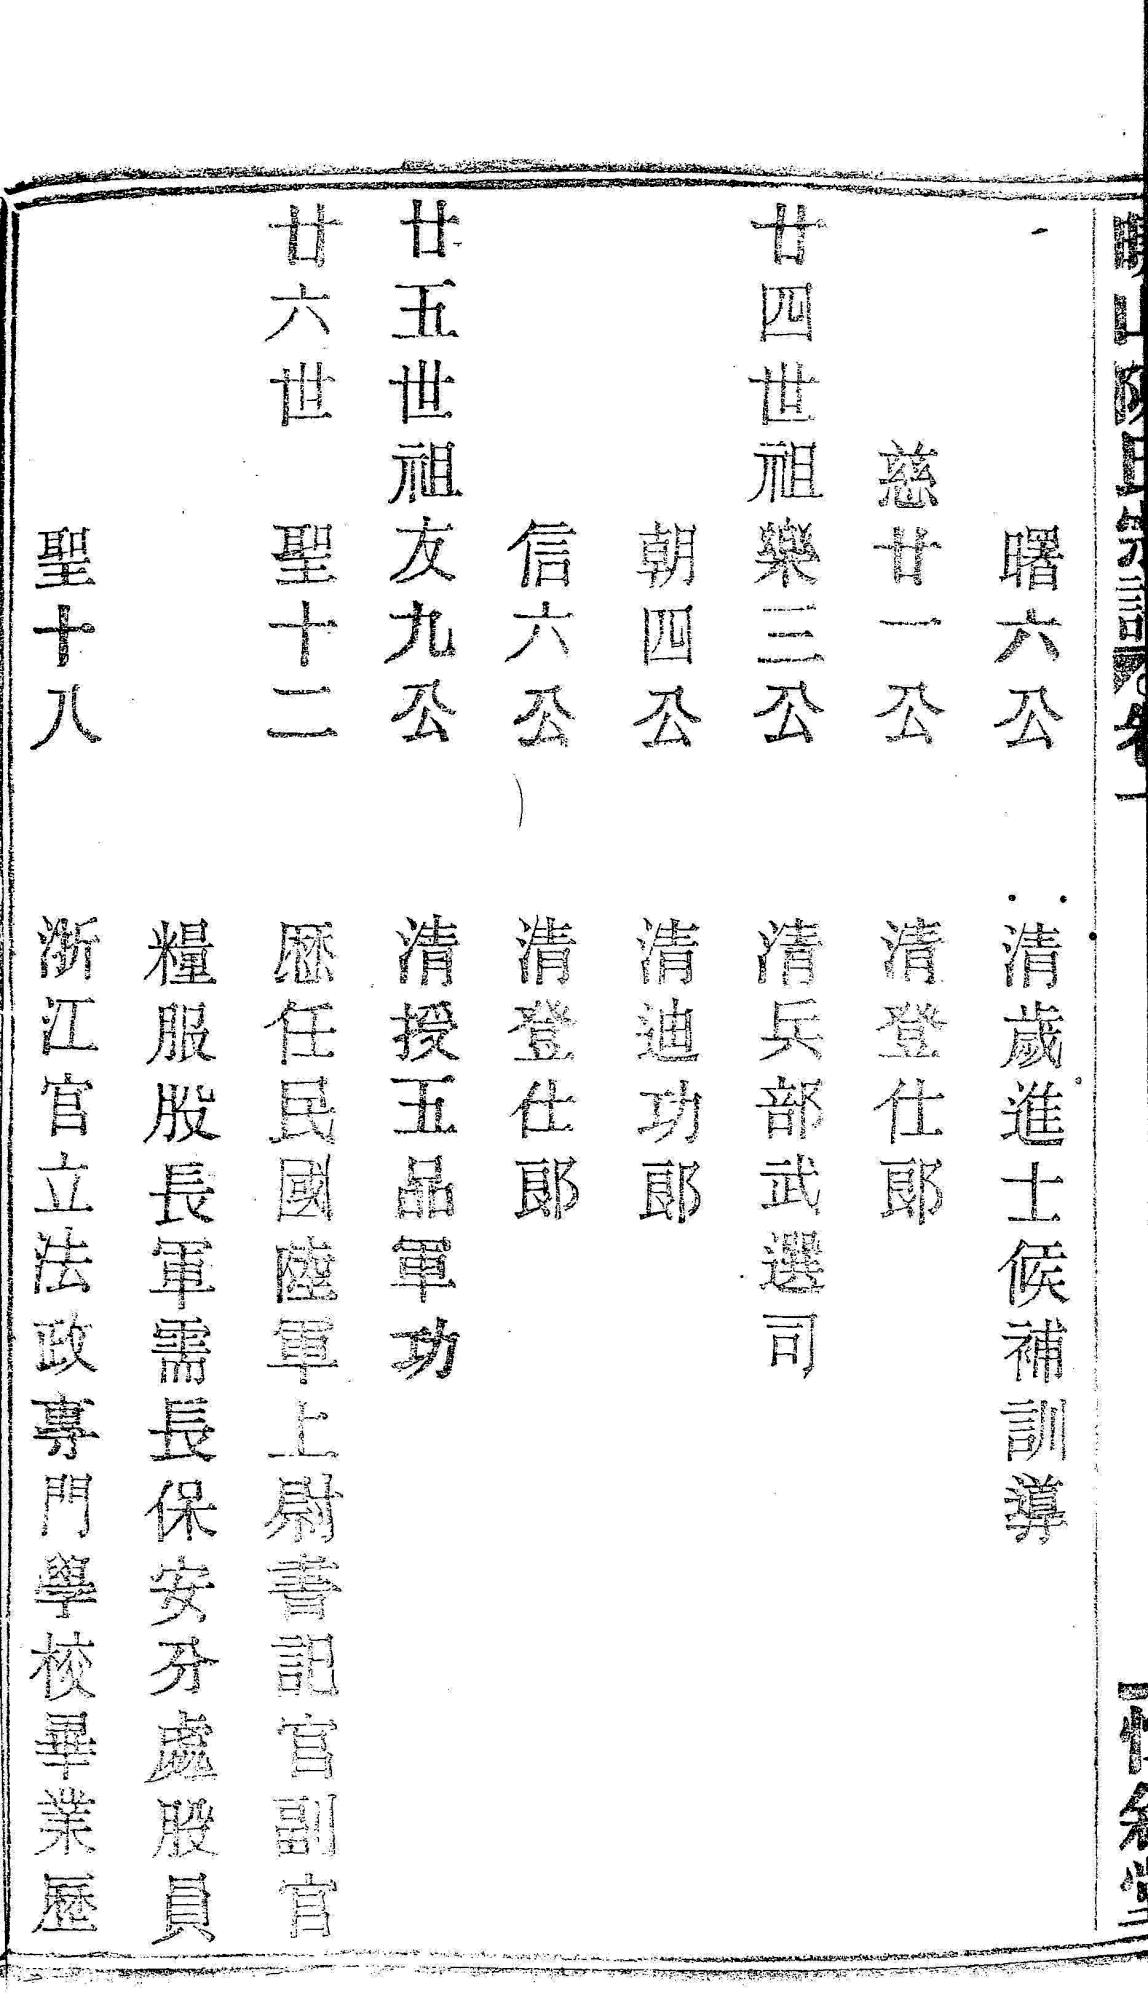 山陳氏宗譜卷一
曙六公 清歲進士候補訓導
慈廿一公 清登仕郎
廿四世祖樂三公 清兵部武選司
朝四公 清迪功郎
信六公 清登仕郎
廿五世祖友九公 清授五品軍功
廿六世 聖十二 歷任民國陸軍上尉書記官副官
糧服股長軍需長保安分處股員
聖十八 浙江官立法政專門學校畢業歷